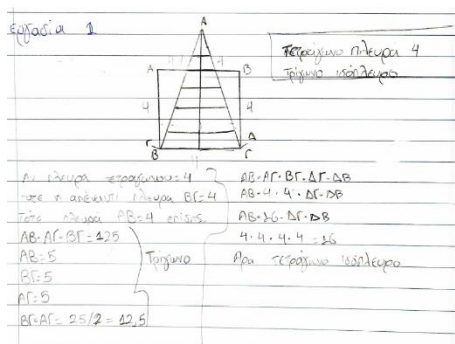 εργασία 1
Α
τετράγωνο πλευρά 4
τρίγωνο ισόπλευρο
4 4
Α Β
4 4
Γ Δ
Β Γ
4
Αν πλευρά τετραγώνου=4
τότε η απέναντι πλευρά ΒΓ=4
Τότε πλευρά ΑΒ=4 επίσης
ΑΒ·ΑΓ·ΒΓ=125
ΑΒ=5
ΒΓ=5
ΑΓ=5
ΒΓ=ΑΓ= 25/2 = 12,5
Τρίγωνο
ΑΒ·ΑΓ·ΒΓ·ΔΓ·ΔΒ
ΑΒ·4·4·ΔΓ·ΔΒ
ΑΒ·16·ΔΓ·ΔΒ
4·4·4·4=16
Άρα τετράγωνο ισόπλευρο